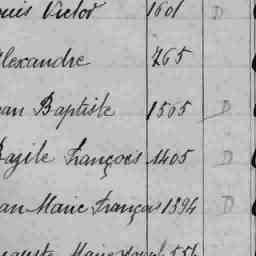 ouis Victor 1601 D
lexandre 765
ean Baptiste 1505 D
Bazile François 1405 D
ean Marie François 1394 D
uguste Marie 556